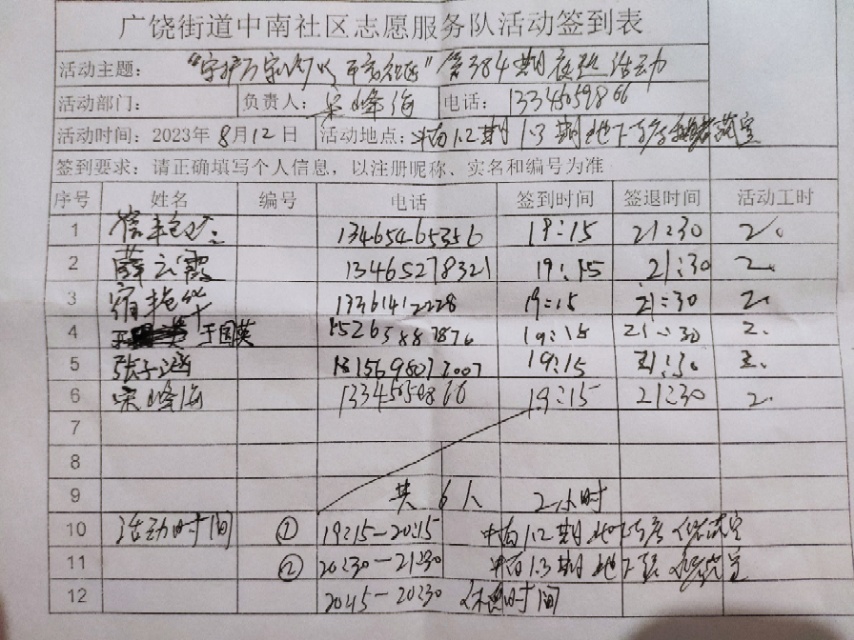 广饶街道中南社区志愿服务队活动签到表
活动主题：“守护万家灯火 平安征途”第384期夜巡活动
活动部门： 负责人：宋峰海 电话：13345659866
活动时间：2023年8月12日 活动地点：中南1.2期 1.3期地下
签到要求：请正确填写个人信息，以注册昵称、实名和编号为准
序号 姓名 编号 电话 签到时间 签退时间 活动工时
1 13465465356 19:15 21:30 2.
2 薛云霞 13465278321 19:15 21:30 2.
3 宿艳华 13361412228 19:15 21:30 2.
4 于国英 15265887876 19:15 21:30 2.
5 张子涵 19:15 21:30 2.
6 宋峰海 13345659866 19:15 21:30 2.
7
8
9 共6人 2小时
10 活动时间 ① 19:15—20:15 中南1.2期地下
11 ② 20:30—21:30 中南1.3期地下
12 2015—2030 休息时间